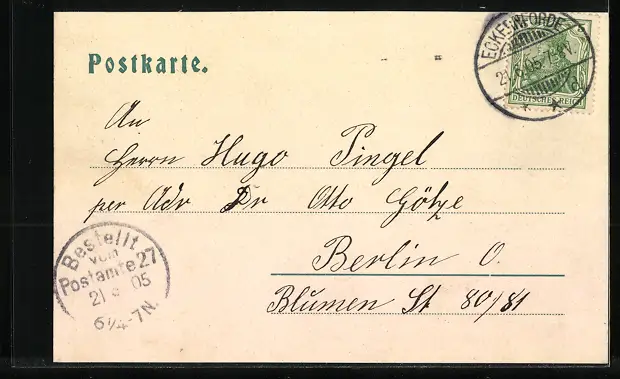 Postkarte.
ECKERNFÖRDE
21. 05. 7-8 V.
DEUTSCHES REICH
An
Herrn Hugo Pingel
per Adr Dr Otto Götze
Berlin O.
Blumen St 80/81
Bestellt
vom
Postamte 27
21 05
6¼-7 N.